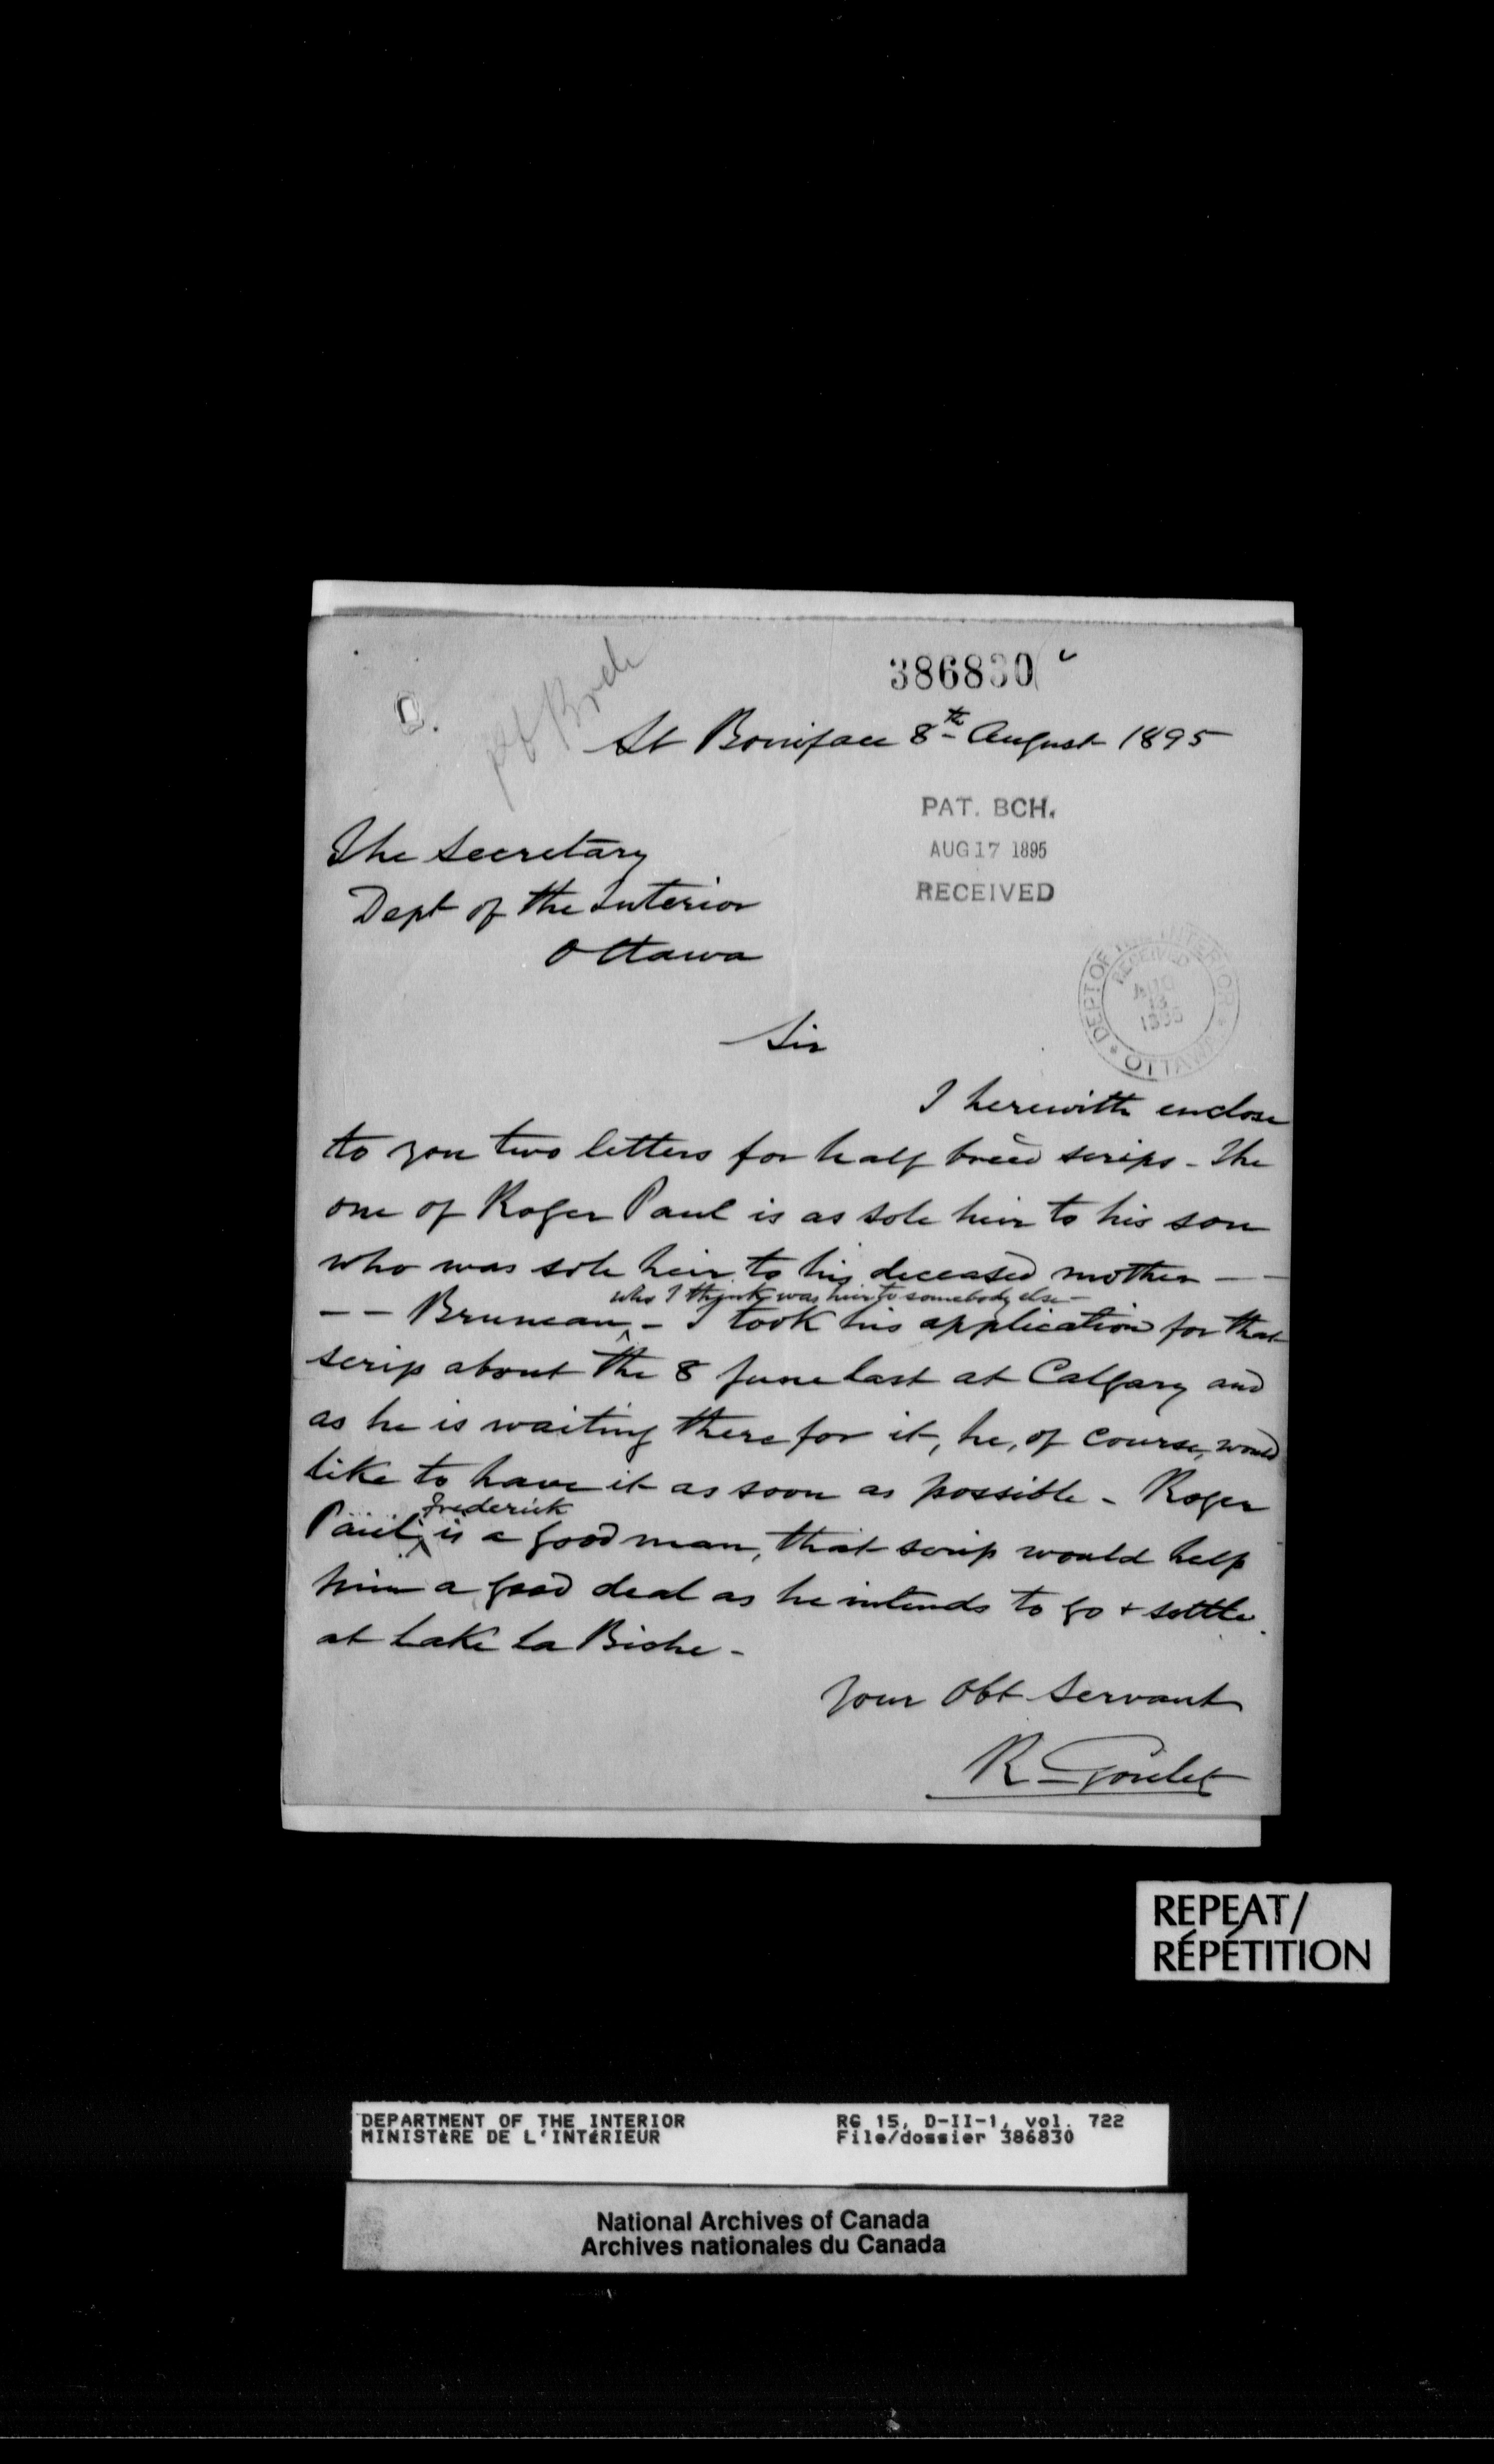 386830
St Boniface 8th August 1895
PAT. BCH.
AUG 17 1895
RECEIVED
The Secretary
Dept of the Interior
Ottawa
DEPT OF THE INTERIOR
RECEIVED
AUG
13
1895
OTTAWA
Sir
I herewith enclose
to you two letters for half breed scrips - The
one of Roger Paul is as sole heir to his son
who was sole heir to his deceased mother - -
who I think was heir to somebody else -
- - Bruneau - I took his application for that
scrip about the 8 June last at Calgary and
as he is waiting there for it, he, of course, would
like to have it as soon as possible - Roger
Frederick
Paul, is a good man, that scrip would help
him a good deal as he intends to go + settle
at Lake La Biche -
Your Obt Servant
R. Goulet
REPEAT/
RÉPÉTITION
DEPARTMENT OF THE INTERIOR
MINISTÈRE DE L'INTÉRIEUR
RG 15, D-II-1, vol. 722
File/dossier 386830
National Archives of Canada
Archives nationales du Canada